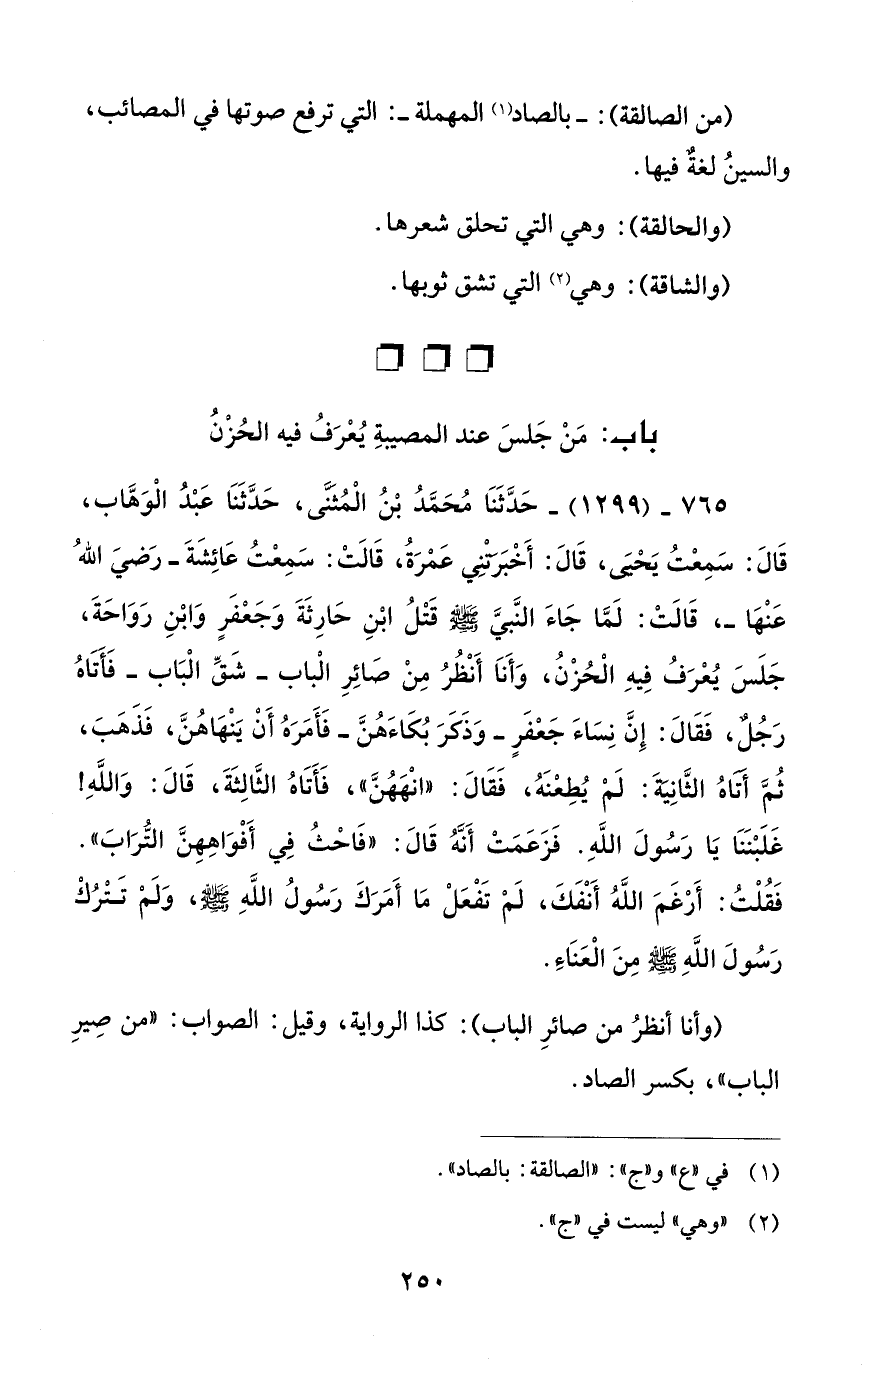 (من الصالقة): ـ بالصاد(١) المهملة ـ: التي ترفع صوتها في المصائب،
والسينُ لغةٌ فيها.
(والحالقة): وهي التي تحلق شعرها.
(والشاقة): وهي(٢) التي تشق ثوبها.
باب: مَنْ جَلسَ عند المصيبةِ يُعْرَفُ فيه الحُزْنُ
٧٦٥ ـ (١٢٩٩) ـ حَدَّثَنَا مُحَمَّدُ بْنُ الْمُثَنَّى، حَدَّثَنَا عَبْدُ الْوَهَّاب،
قَالَ: سَمِعْتُ يَحْيَى، قَالَ: أَخْبَرَتْنِي عَمْرَةُ، قَالَتْ: سَمِعْتُ عَائِشَةَ ـ رَضيَ اللهُ
عَنْهَا ـ، قَالَتْ: لَمَّا جَاءَ النَّبِيَّ ﷺ قَتْلُ ابْنِ حَارِثَةَ وَجَعْفَرٍ وَابْنِ رَوَاحَةَ،
جَلَسَ يُعْرَفُ فِيهِ الْحُزْنُ، وَأَنَا أَنْظُرُ مِنْ صَائِرِ الْباب ـ شَقِّ الْبَاب ـ فَأَتَاهُ
رَجُلٌ، فَقَالَ: إِنَّ نِسَاءَ جَعْفَرٍ ـ وَذَكَرَ بُكَاءَهُنَّ ـ فَأَمَرَهُ أَنْ يَنْهَاهُنَّ، فَذَهَبَ،
ثُمَّ أَتَاهُ الثَّانِيَةَ: لَمْ يُطِعْنَهُ، فَقَالَ: «انْهَهُنَّ»، فَأَتَاهُ الثَّالِثَةَ، قَالَ: وَاللَّهِ!
غَلَبْنَنَا يَا رَسُولَ اللَّهِ. فَزَعَمَتْ أَنَّهُ قَالَ: «فَاحْثُ فِي أَفْوَاهِهِنَّ التُّرَابَ».
فَقُلْتُ: أَرْغَمَ اللَّهُ أَنْفَكَ، لَمْ تَفْعَلْ مَا أَمَرَكَ رَسُولُ اللَّهِ ﷺ، وَلَمْ تَتْرُكْ
رَسُولَ اللَّهِ ﷺ مِنَ الْعَنَاءِ.
(وأنا أنظرُ من صائرِ الباب): كذا الرواية، وقيل: الصواب: «من صِيرِ
الباب»، بكسر الصاد.
(١) في «ع» و«ج»: «الصالقة: بالصاد».
(٢) «وهي» ليست في «ج».
٢٥٠